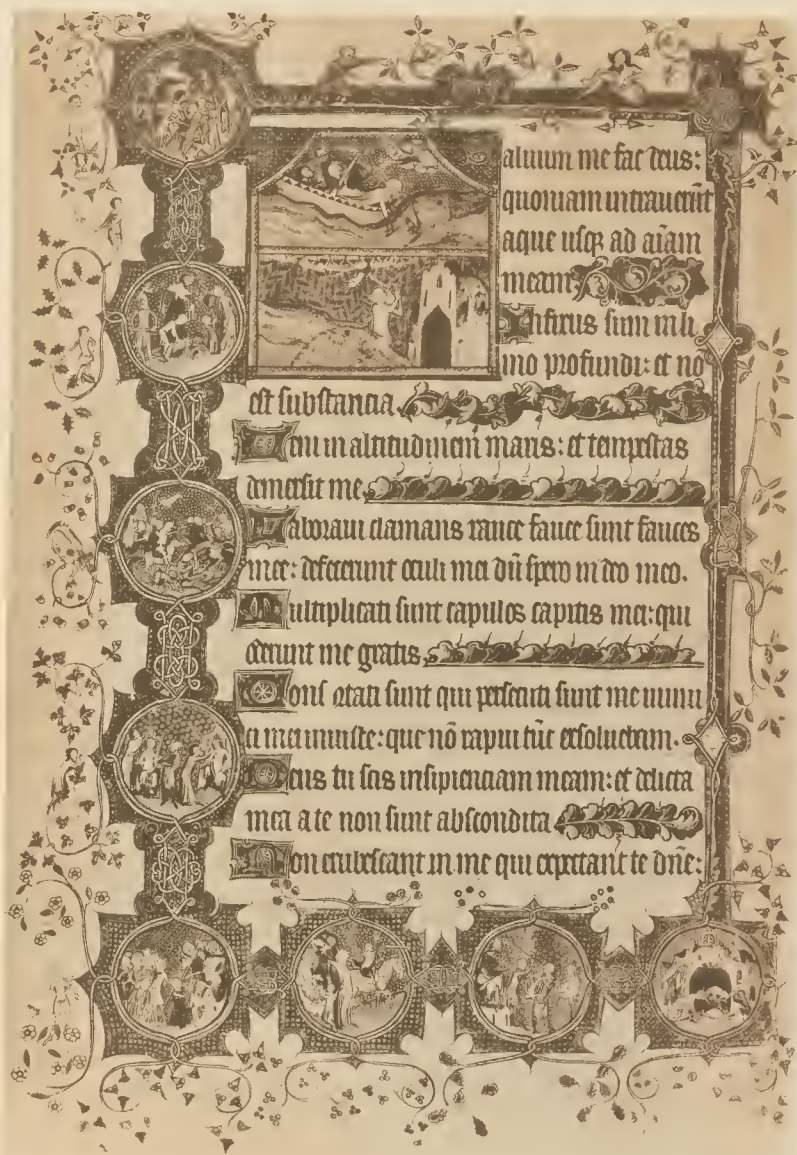 aluum me fac deus:
quoniam intrauerūt
aque usqꝫ ad aīam
meam
Infixus sum in li
mo profundi: et nō
est substancia
Ueni in altitudinem maris: et tempestas
demersit me
Laboraui clamans rauce facte sunt fauces
mee: defecerunt oculi mei dū spero in deo meo.
Multiplicati sunt capillos capitis mei: qui
oderunt me gratis
Confortati sunt qui persecuti sunt me inimi
ci mei iniuste: que nō rapui tūc exsoluebam.
Deus tu scis insipienciam meam: et delicta
mea a te non sunt abscondita
Non erubescant in me qui expectant te dn̄e: